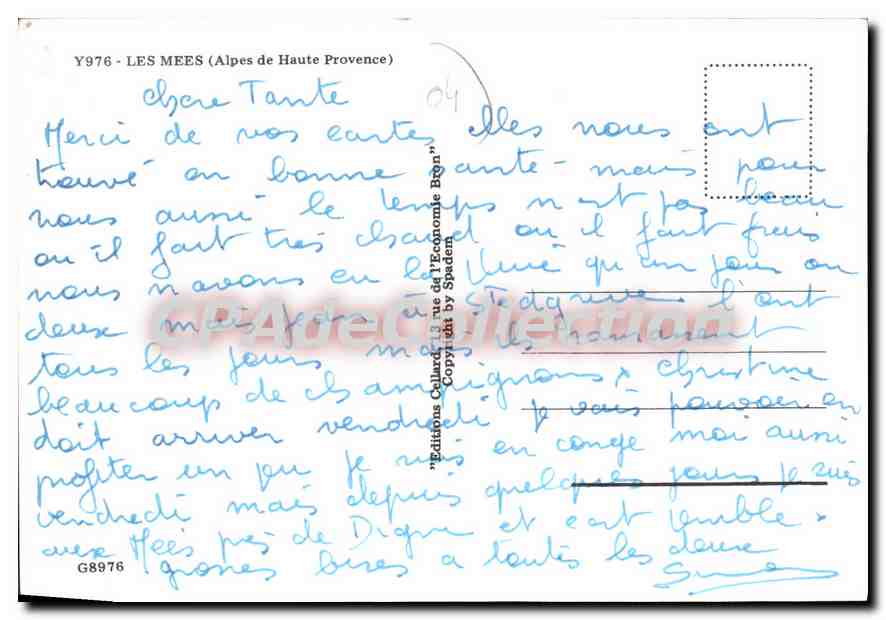 Y976 - LES MEES (Alpes de Haute Provence)
04
chere Tante
Merci de vos cartes elles nous ont
trouvé en bonne sante - mais pour
nous aussi le temps n est pas beau
ou il fait très chaud ou il fait frais
nous n avons eu la qu un jour ou
deux mais jeans à l'ont
tous les jours mais ils ramassent
beaucoup de champignons x christine
doit arriver vendredi je vais pouvoir en
profiter un peu je suis en conge moi aussi
vendredi mais depuis quelques jours je suis
aux Mées près de Digne et c est terrible x
grosses bises a toutes les deux
"Editions Cellard, 13 rue de l'Economie Bron"
Copyright by Spadem
G8976
CPAdeCollection